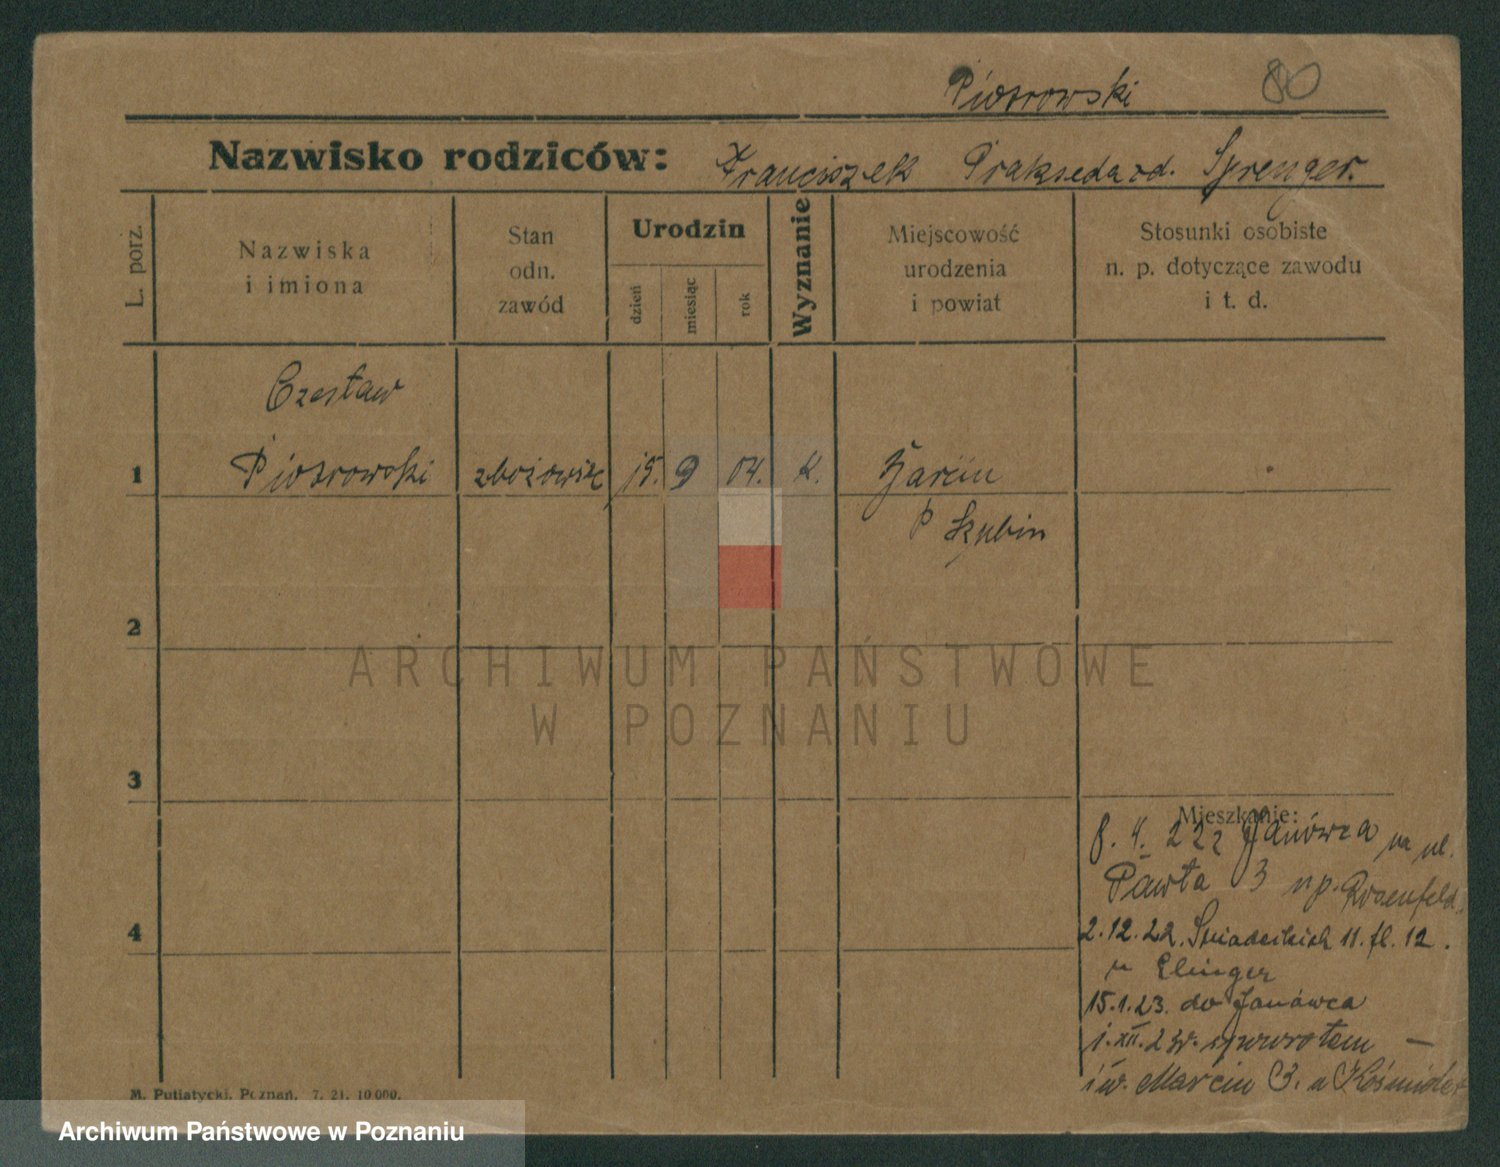 Piotrowski 80
Nazwisko rodziców: Franciszek Prakseda rd. Sprenger.
L. porz.
Nazwiska
i imiona
Stan
odn.
zawód
Urodzin
dzień
miesiąc
rok
Wyznanie
Miejscowość
urodzenia
i powiat
Stosunki osobiste
n. p. dotyczące zawodu
i t. d.
Czesław
1 Piotrowski zbożowiec 15. 9 04. k. Żarćin
P Szubin
2
ARCHIWUM PAŃSTWOWE
W POZNANIU
3
Mieszkanie:
8. 4. 22 z Janówca na ul.
Pawła 3 np. Rosenfeld.
4
2.12.22. Śniadeckich 11. fl. 12.
u Elinger
15.1.23. do Janówca
1. XII. 23r. spowrotem —
św. Marcin 3. u
M. Putiatycki, Poznań. 7. 21. 10 000.
Archiwum Państwowe w Poznaniu